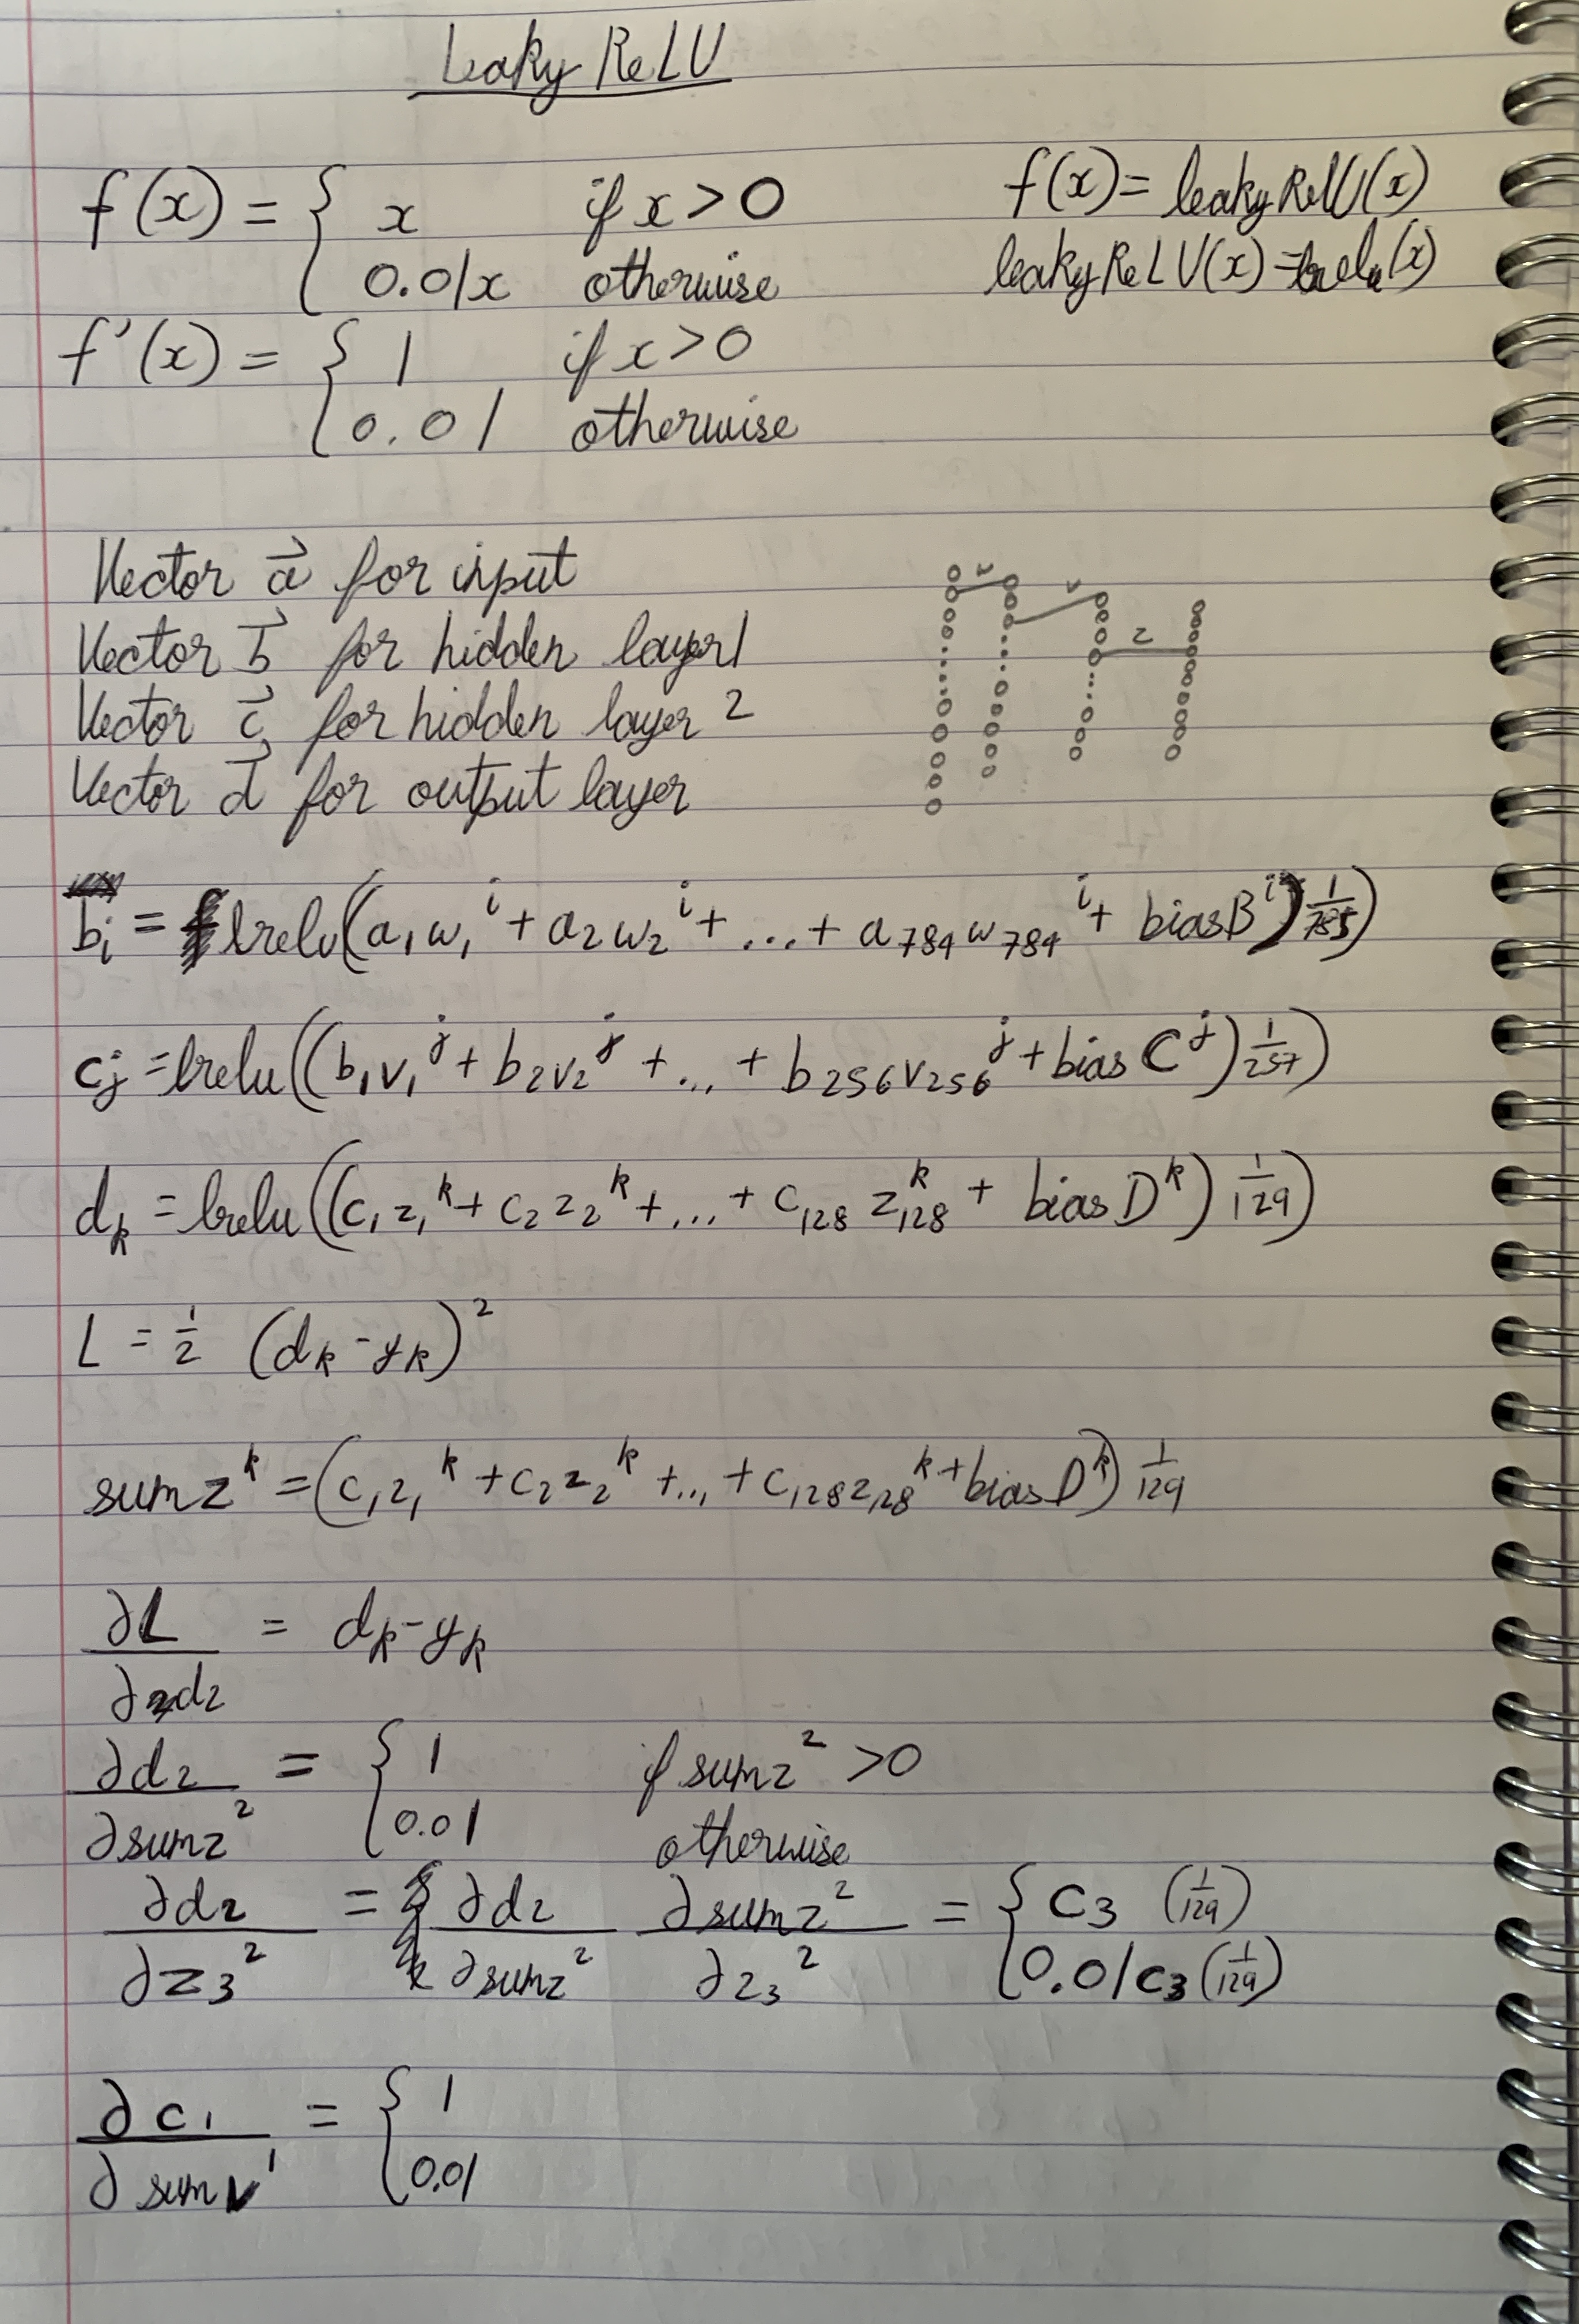 Leaky ReLU
f(x) = { x if x > 0 f(x) = leakyReLU(x)
0.01x otherwise leakyReLU(x) = lrelu(x)
f'(x) = { 1 if x > 0
0.01 otherwise
Vector a⃗ for input
Vector b⃗ for hidden layer 1
Vector c⃗ for hidden layer 2
Vector d⃗ for output layer
w v z
bᵢ = lrelu((a₁w₁ⁱ + a₂w₂ⁱ + ... + a₇₈₄w₇₈₄ⁱ + biasBⁱ) 1/785)
cⱼ = lrelu((b₁v₁ʲ + b₂v₂ʲ + ... + b₂₅₆v₂₅₆ʲ + bias Cʲ) 1/257)
dₖ = lrelu((c₁z₁ᵏ + c₂z₂ᵏ + ... + c₁₂₈z₁₂₈ᵏ + bias Dᵏ) 1/129)
L = 1/2 (dₖ - yₖ)²
sumzᵏ = (c₁z₁ᵏ + c₂z₂ᵏ + ... + c₁₂₈z₁₂₈ᵏ + bias Dᵏ) 1/129
∂L/∂d₂ = dₖ - yₖ
∂d₂/∂sumz² = { 1 if sumz² > 0
0.01 otherwise
∂d₂/∂z₃² = ∂d₂/∂sumz² ∂sumz²/∂z₃² = { c₃ (1/129)
0.01c₃ (1/129)
∂c₁/∂sumv¹ = { 1
0.01